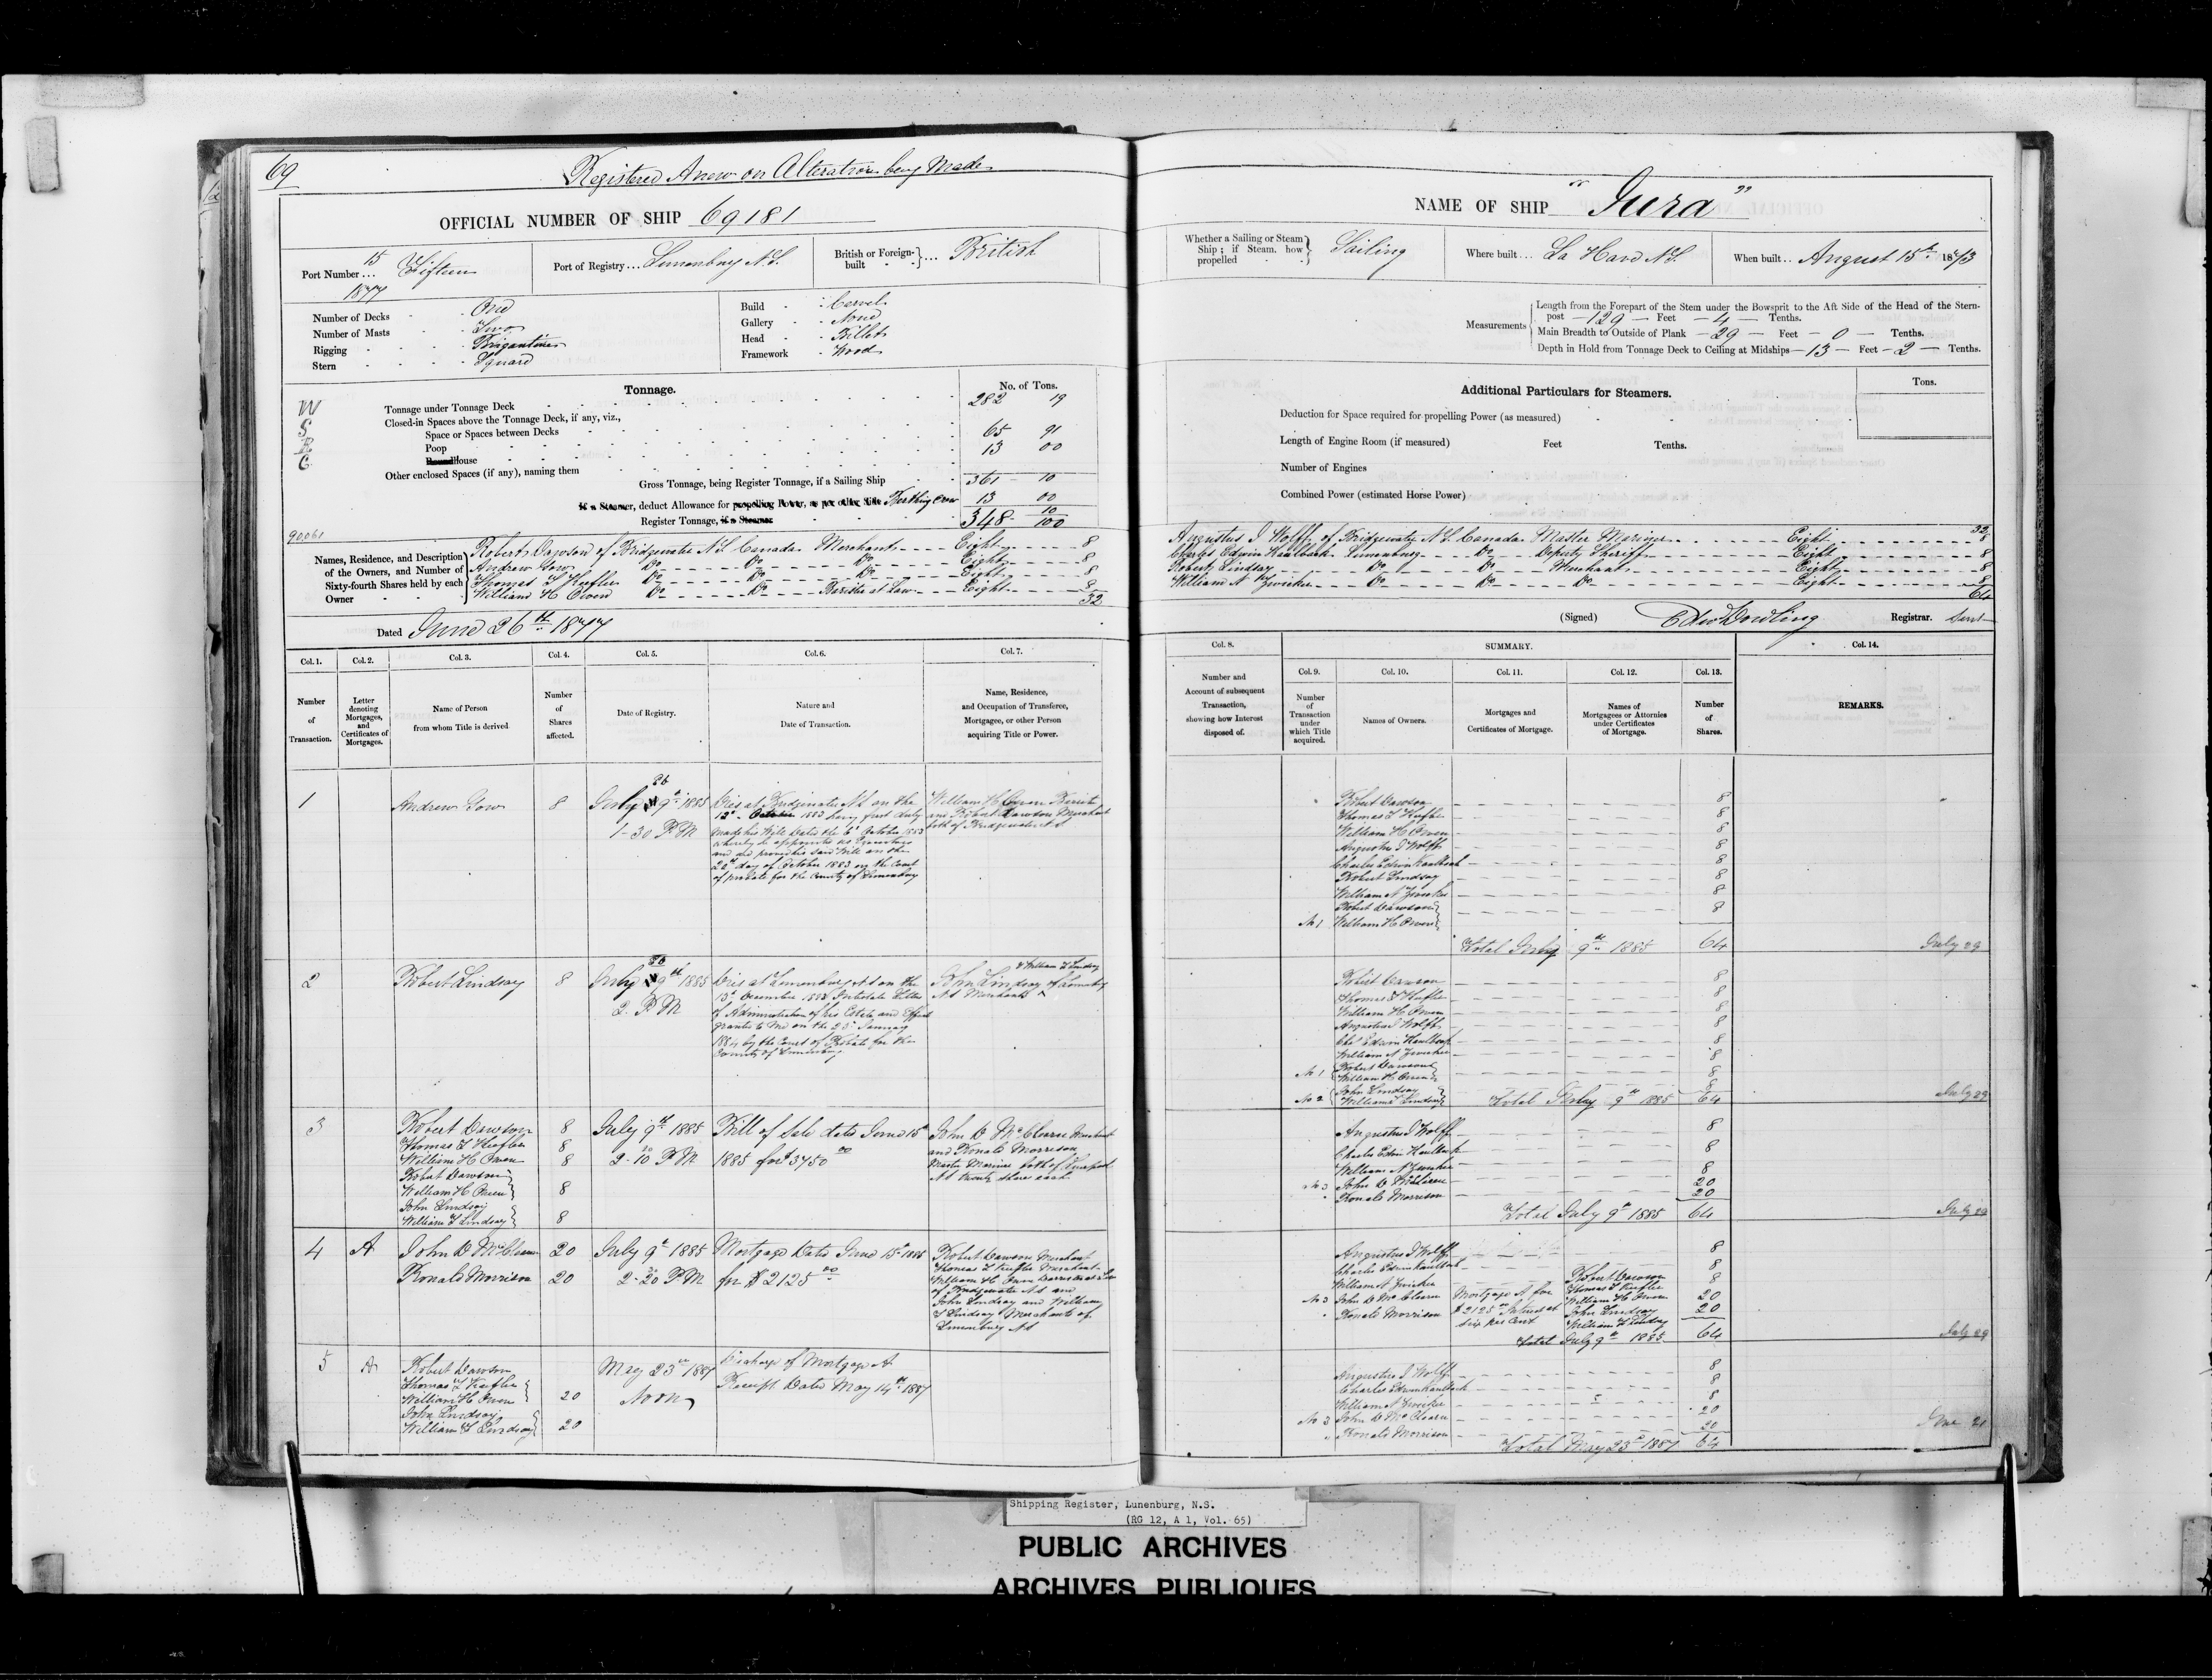 69
Registered Anew on Alteration being Made
OFFICIAL NUMBER OF SHIP 69181
Port Number ... 15 Fifteen 1877
Port of Registry ... Lunenburg N.S.
British or Foreign-built ... British
Number of Decks - One
Number of Masts - Two
Rigging - Brigantine
Stern - Square
Build - Carvel
Gallery - None
Head - Billet
Framework - Wood
Tonnage.
No. of Tons.
W
S
R
C
Tonnage under Tonnage Deck 282 19
Closed-in Spaces above the Tonnage Deck, if any, viz.,
Space or Spaces between Decks
Poop 65 91
House 13 00
Other enclosed Spaces (if any), naming them
Gross Tonnage, being Register Tonnage, if a Sailing Ship 361 10
If a Steamer, deduct Allowance for propelling Power, as per other side Berthing Crew 13 00
Register Tonnage, if a Steamer 348 10/100
90,061
Names, Residence, and Description of the Owners, and Number of Sixty-fourth Shares held by each Owner
Robert Dawson of Bridgewater N.S. Canada Merchant Eight 8
Andrew Gow Do Do Do Eight 8
Thomas T Keefler Do Do Do Eight 8
William H Owen Do Do Barister at Law Eight 8
32
Dated June 26th 1877
NAME OF SHIP "Jura"
Whether a Sailing or Steam Ship; if Steam, how propelled Sailing
Where built ... La Have N.S.
When built ... August 15th 1873
Measurements
Length from the Forepart of the Stem under the Bowsprit to the Aft Side of the Head of the Stern-
post 129 Feet 4 Tenths.
Main Breadth to Outside of Plank 29 Feet 0 Tenths.
Depth in Hold from Tonnage Deck to Ceiling at Midships 13 Feet 2 Tenths.
Additional Particulars for Steamers.
Tons.
Deduction for Space required for propelling Power (as measured)
Length of Engine Room (if measured) Feet Tenths.
Number of Engines
Combined Power (estimated Horse Power)
32
Augustus J Wolff of Bridgewater N.S. Canada Master Mariner Eight 8
Charles Edwin Kaulback Lunenburg Do Deputy Sheriff Eight 8
Robert Lindsay Do Do Merchant Eight 8
William N Zwicker Do Do Do Eight 8
64
(Signed) Edw Dowling Registrar.
Col. 1. Number of Transaction.
Col. 2. Letter denoting Mortgages, and Certificates of Mortgages.
Col. 3. Name of Person from whom Title is derived
Col. 4. Number of Shares affected.
Col. 5. Date of Registry.
Col. 6. Nature and Date of Transaction.
Col. 7. Name, Residence, and Occupation of Transferee, Mortgagee, or other Person acquiring Title or Power.
Col. 8. Number and Account of subsequent Transaction, showing how Interest disposed of.
SUMMARY.
Col. 9. Number of Transaction under which Title acquired.
Col. 10. Names of Owners.
Col. 11. Mortgages and Certificates of Mortgage.
Col. 12. Names of Mortgagees or Attornies under Certificates of Mortgage.
Col. 13. Number of Shares.
Col. 14. REMARKS.
1
Andrew Gow
8
July 9th 1885
1-30 P.M
Dies at Bridgewater N.S. on the
12th October 1883 having first duly
made his Will Dated the 6th October 1883
whereby he appointed us Executors
and we proved the said Will on the
20th day of October 1883 in the Court
of probate for the County of Lunenburg
William H Owen Barister
and Robert Dawson Merchant
both of Bridgewater N.S
Robert Dawson 8
Thomas T Keefler 8
William H Owen 8
Augustus J Wolff 8
Charles Edwin Kaulback 8
Robert Lindsay 8
William N Zwicker 8
Robert Dawson
No 1 William H Owen 8
Total July 9th 1885 64
July 29
2
Robert Lindsay
8
July 9th 1885
2. P.M
Dies at Lunenburg N.S on the
13th December 1883 Intestate Letters
of Administration of his Estate and Effects
granted to Me on the 25 January
1884 by the Court of Probate for the
County of Lunenburg
& William T Lindsay
John Lindsay of Lunenburg
N.S Merchants
Robert Dawson 8
Thomas T Keefler 8
William H Owen 8
Augustus J Wolff 8
Chs Edwin Kaulback 8
William N Zwicker 8
No 1 Robert Dawson
William H Owen 8
No 2 John Lindsay
William T Lindsay 8
Total July 9th 1885 64
July 29
3
Robert Dawson 8
Thomas T Keefler 8
William H Owen 8
Robert Dawson
William H Owen 8
John Lindsay
William T Lindsay 8
July 9th 1885
2-10 P.M
Bill of Sale dated June 15th
1885 for $3750 00
John D McClearn Merchant
and Ronald Morrison
Master Mariner both of Liverpool
N.S twenty share each
Augustus J Wolff 8
Charles Edwin Kaulback 8
William N Zwicker 8
No 3 John D McClearn 20
" Ronald Morrison 20
Total July 9th 1885 64
July 29
4
A
John D McClearn 20
Ronald Morrison 20
July 9th 1885
2-20 P.M
Mortgage Dated June 15th 1885
for $2125 00
Robert Dawson Merchant
Thomas T Keefler Merchant
William H Owen Barrister at Law
of Bridgewater N.S and
John Lindsay and William
T Lindsay Merchants of
Lunenburg N.S
Augustus J Wolff 8
Charles Edwin Kaulback 8
William N Zwicker 8
No 3 John D McClearn 20
" Ronald Morrison 20
Mortgage A for
$2125 00 Interest at
six per Cent
Robert Dawson
Thomas T Keefler
William H Owen
John Lindsay
William T Lindsay
Total July 9th 1885 64
July 29
5
A
Robert Dawson
Thomas T Keefler
William H Owen 20
John Lindsay
William T Lindsay 20
May 23rd 1887
Noon
Discharge of Mortgage A
Receipt Dated May 14th 1887
Augustus J Wolff 8
Charles Edwin Kaulback 8
William N Zwicker 8
No 3 John D McClearn 20
" Ronald Morrison 20
Total May 23rd 1887 64
June 21
Shipping Register, Lunenburg, N.S.
(RG 12, A 1, Vol. 65)
PUBLIC ARCHIVES
ARCHIVES PUBLIQUES